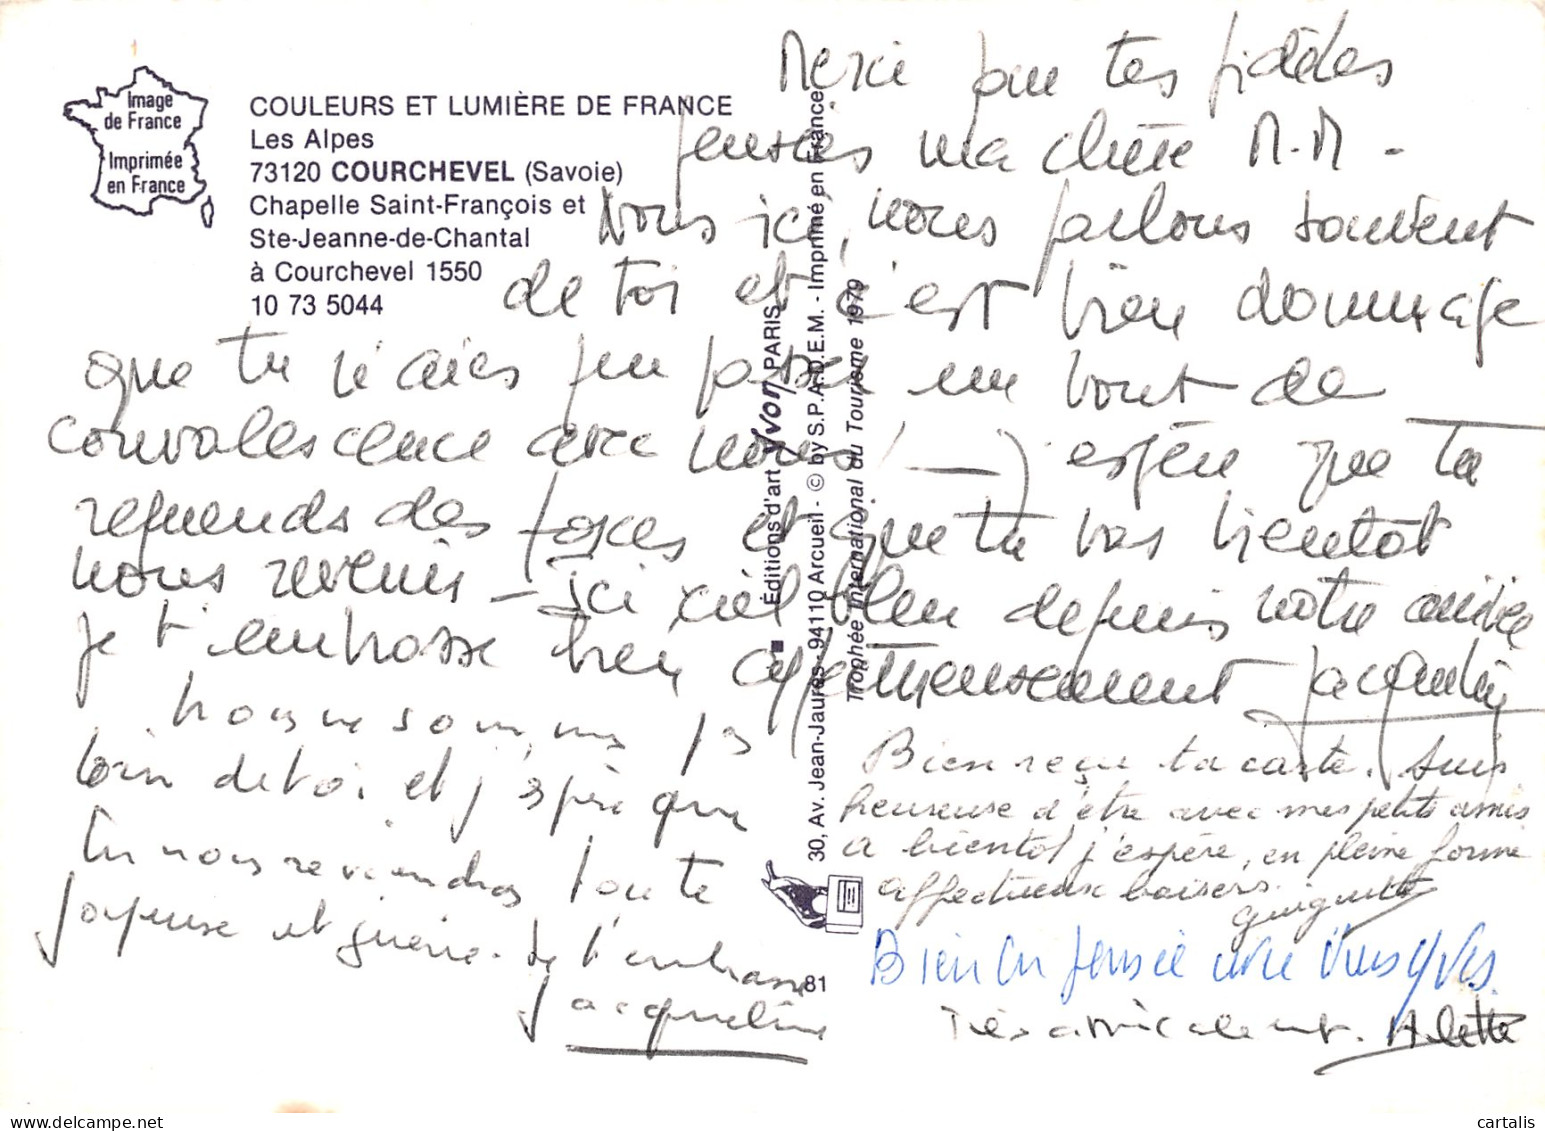 Image
de France
Imprimée
en France
COULEURS ET LUMIÈRE DE FRANCE
Les Alpes
73120 COURCHEVEL (Savoie)
Chapelle Saint-François et
Ste-Jeanne-de-Chantal
à Courchevel 1550
10 73 5044
Merci pour tes fidèles
pensées ma chère M.M -
Nous ici, nous parlons souvent
de toi et c'est bien dommage
que tu n'aies pu passer un bout de
convalescence avec nous espère que tu
reprends des forces et que tu vas bientôt
nous revenir - ici ciel bleu depuis notre arrivée
je t'embrasse bien affectueusement
nous ne sommes pas
loin de toi. et j'espère que
tu nous reviendras toute
joyeuse et guérie. Je t'embrasse
Jacqueline
Bien reçu ta carte. Suis
heureuse d'être avec mes petits amis
a bientôt j'espère, en pleine forme
affectueux baisers.
Guiguitte
Bien en pensée avec vous Yves.
Très amicalement. Arlette
■ Éditions d'art Yvon PARIS
30, Av. Jean-Jaurès - 94110 Arcueil - © by S.P.A.D.E.M. - Imprimé en France
Trophée International du Tourisme 1979
81
cartalis